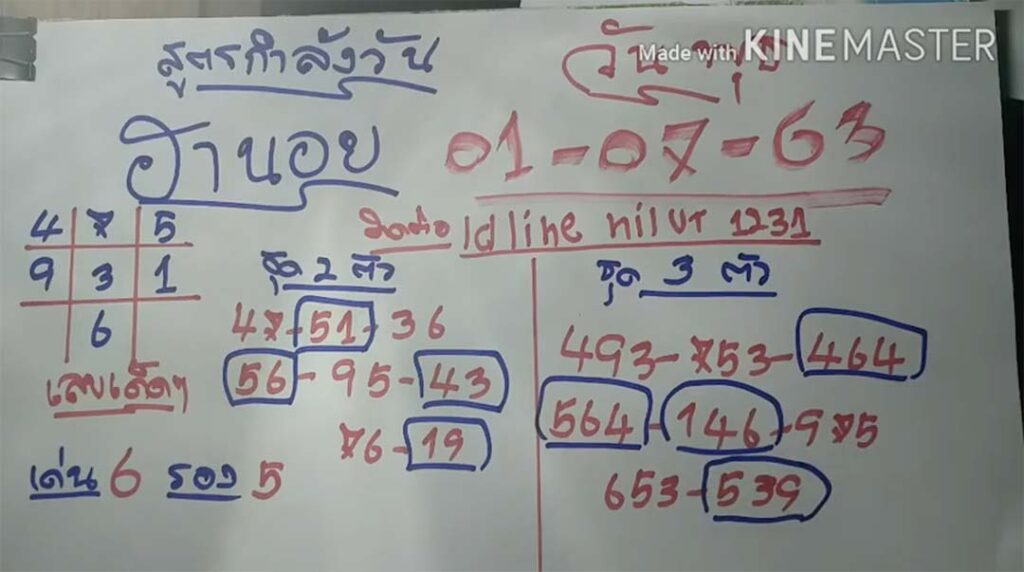 สูตรกำลังวัน
วัน
Made with KINEMASTER
ฮานอย
01-07-63
ติดต่อ Id line nilut 1231
4 7 5
9 3 1
6
ชุด 2 ตัว
47-51-36
56-95-43
76-19
ชุด 3 ตัว
493-753-464
564-146-975
653-539
เลขเด็ดๆ
เด่น 6 รอง 5